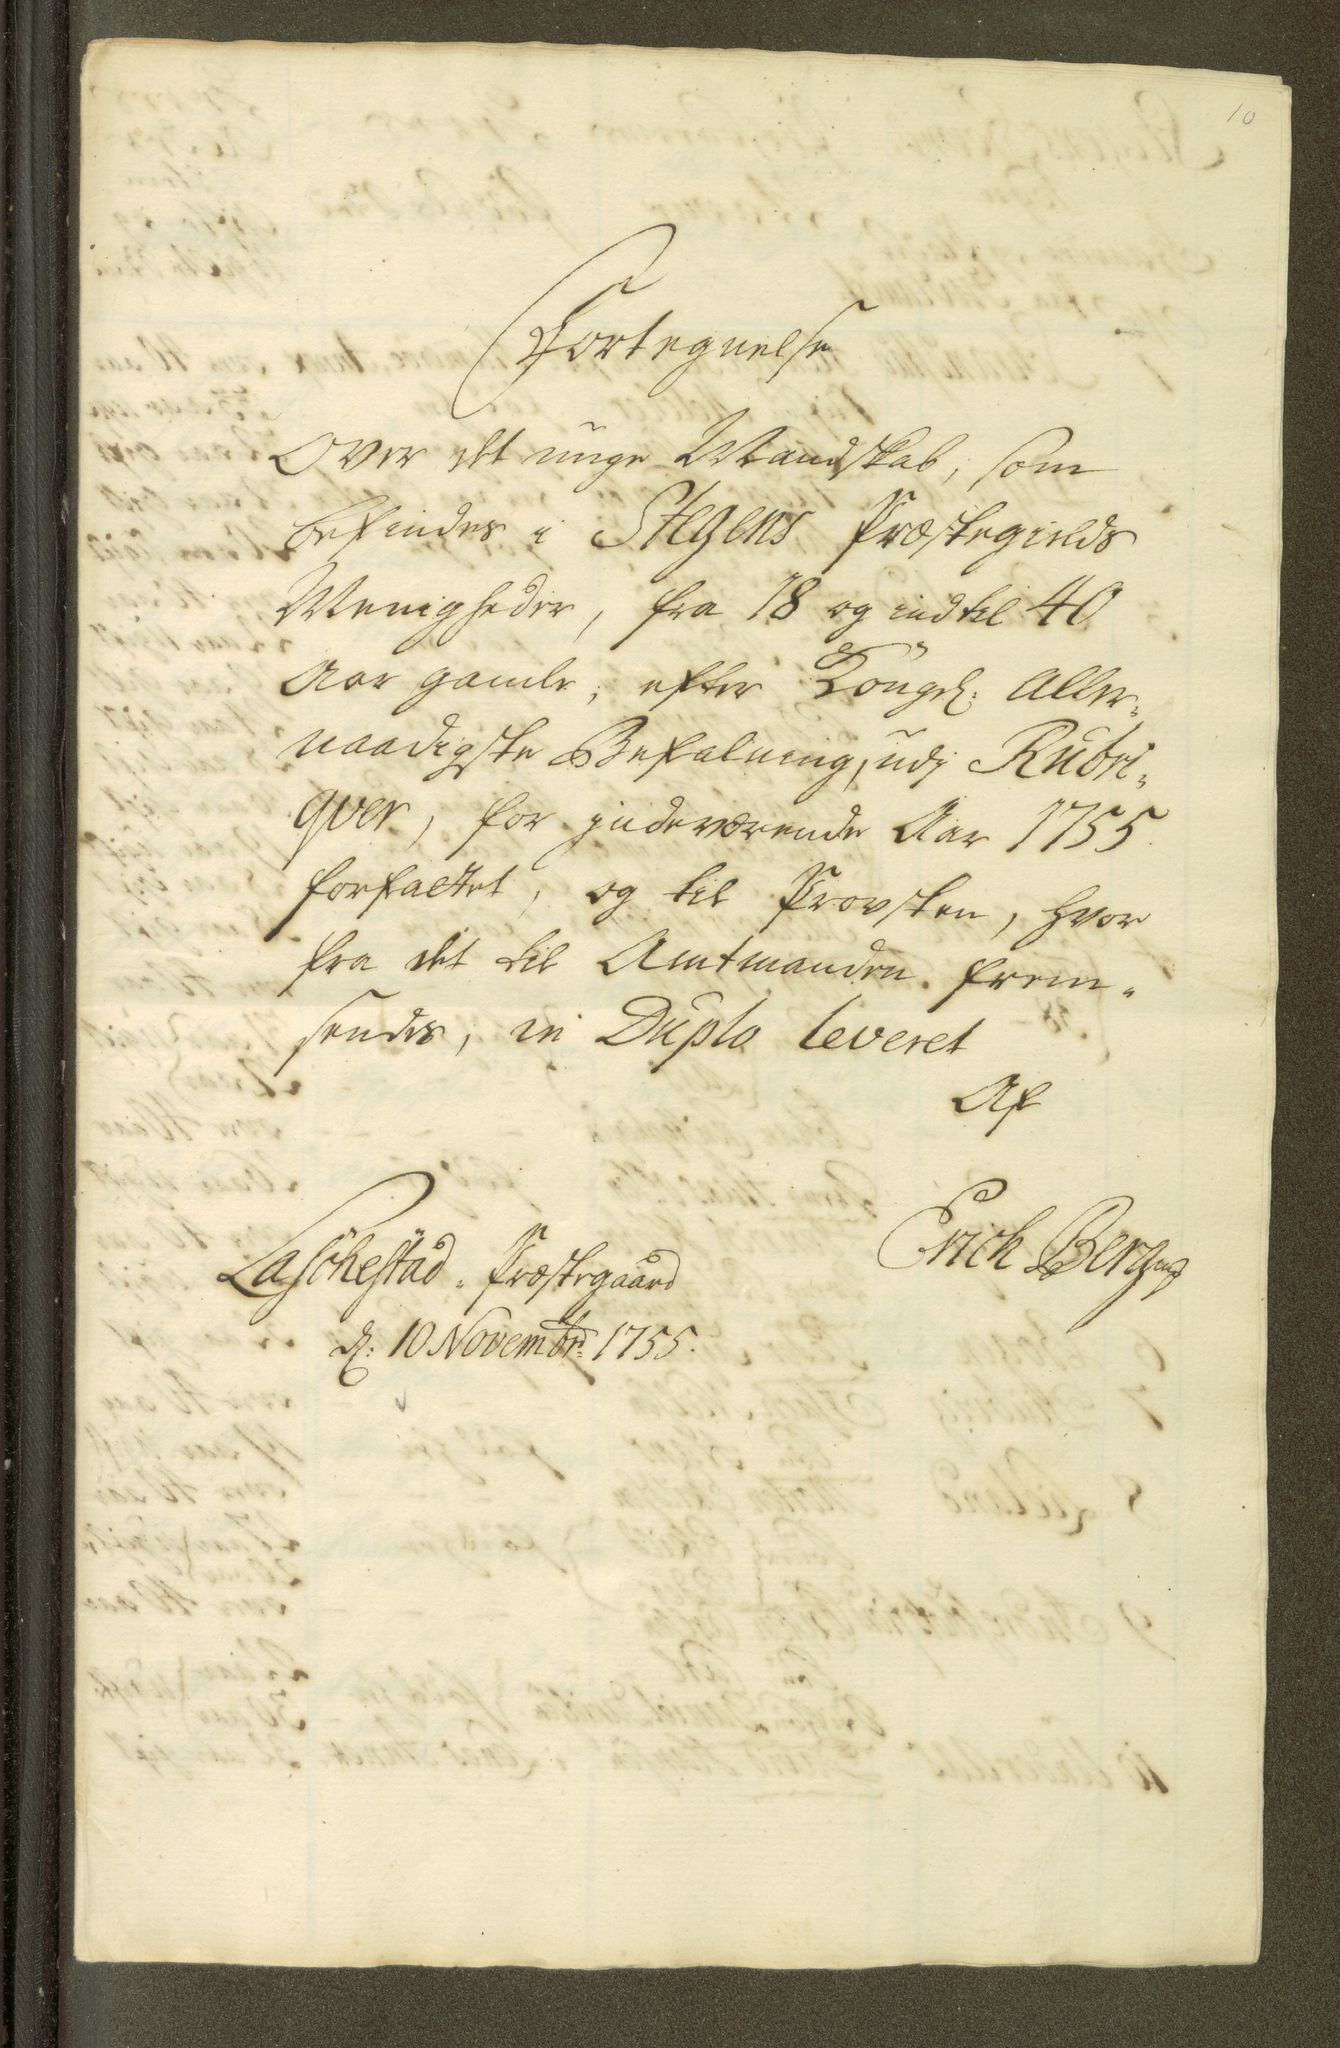 10
Fortegnelse
Over det unge Mandskab, som
befindes i Stegens Præstegields
Menigheder, fra 18 og indtil 40
Aar gamle; efter Kongel: Aller-
naadigste Befalning, udj Rubri-
qver, for indeværende Aar 1755.
forfattet, og til Provsten, hvor
fra det til Amtmanden frem-
sendes, in Duplo leveret
Af
Erich Berg
Laschestad Præstegaard
d: 10 Novembr: 1755.